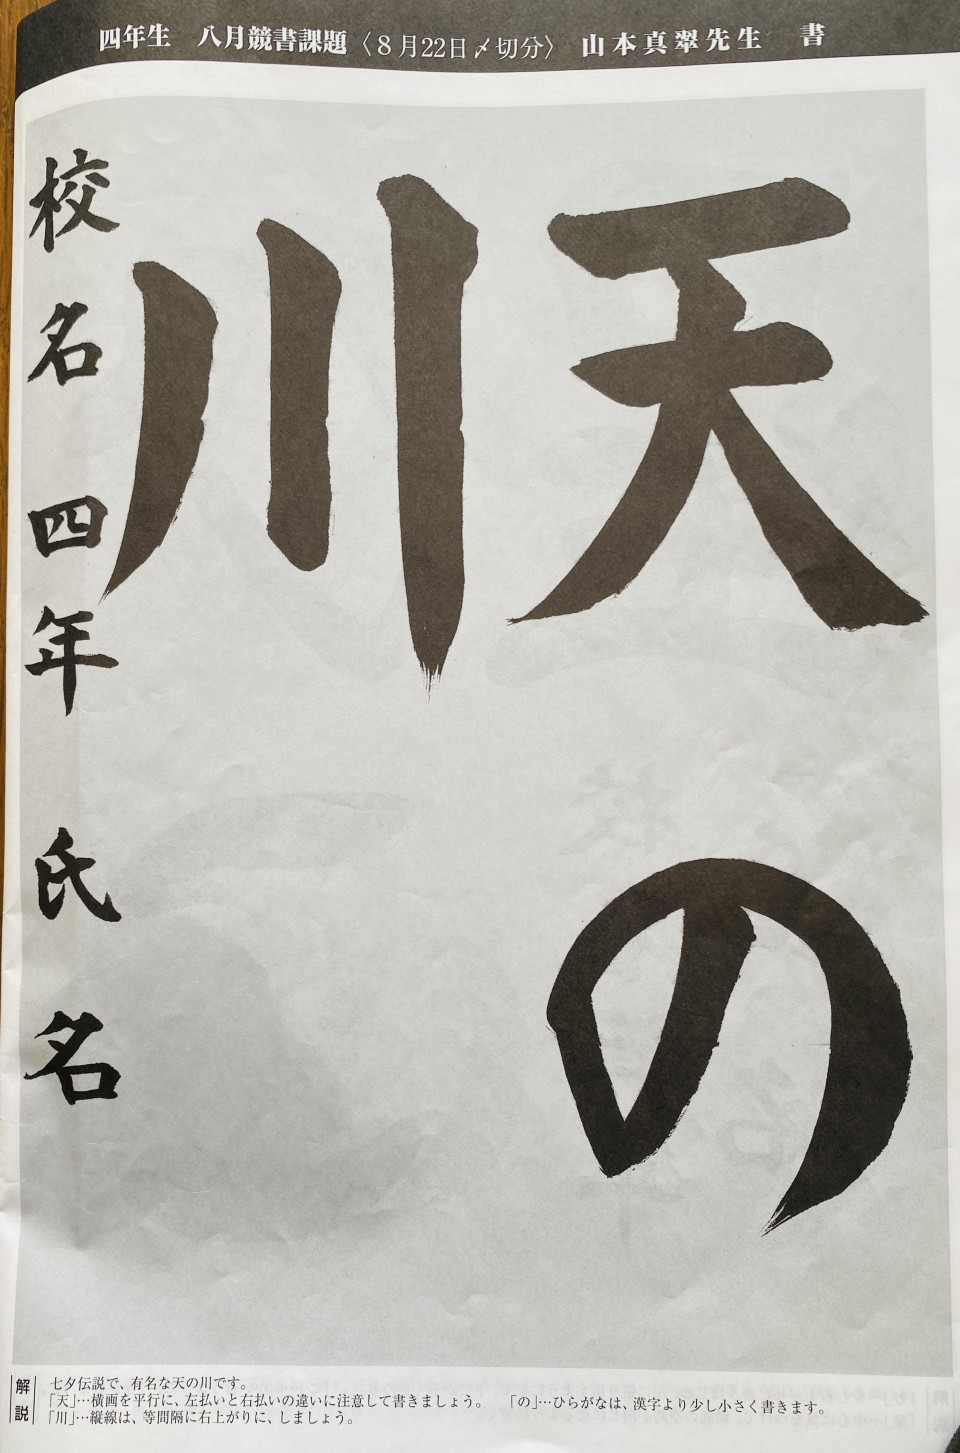 四年生 八月競書課題〈8月22日〆切分〉 山本真翠先生 書
天の
川
校名 四年 氏名
解説
七夕伝説で、有名な天の川です。
「天」…横画を平行に、左払いと右払いの違いに注意して書きましょう。 「の」…ひらがなは、漢字より少し小さく書きます。
「川」…縦線は、等間隔に右上がりに、しましょう。